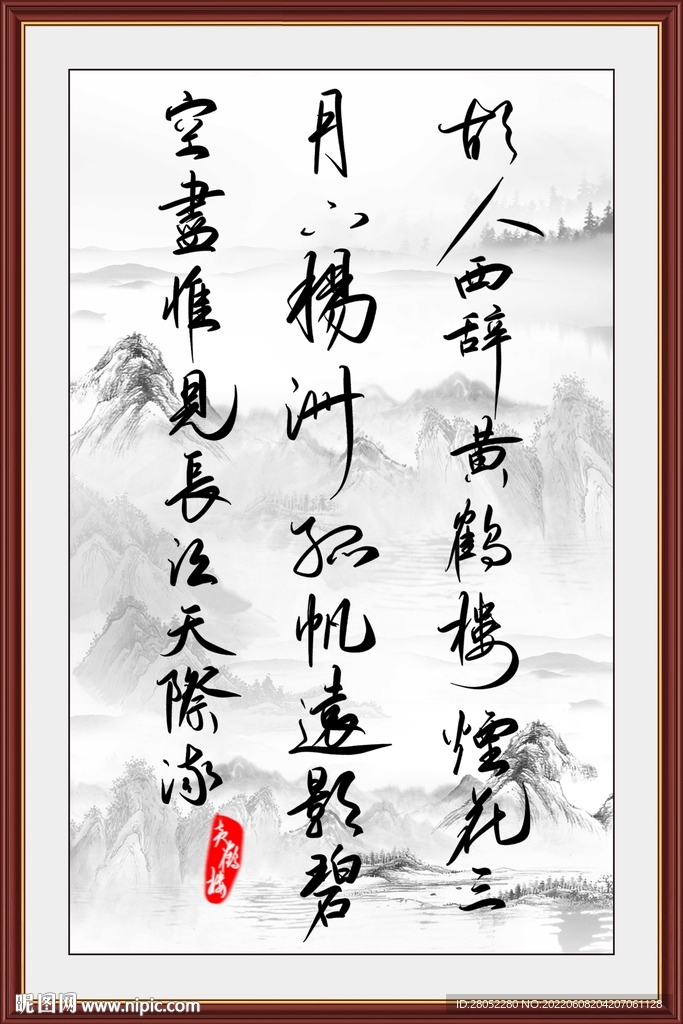 故人西辞黄鹤楼煙花三
月下楊洲孤帆遠影碧
空盡惟見長江天際流
黄鹤楼
昵图网 www.nipic.com
ID:28052280 NO:20220608204207061128